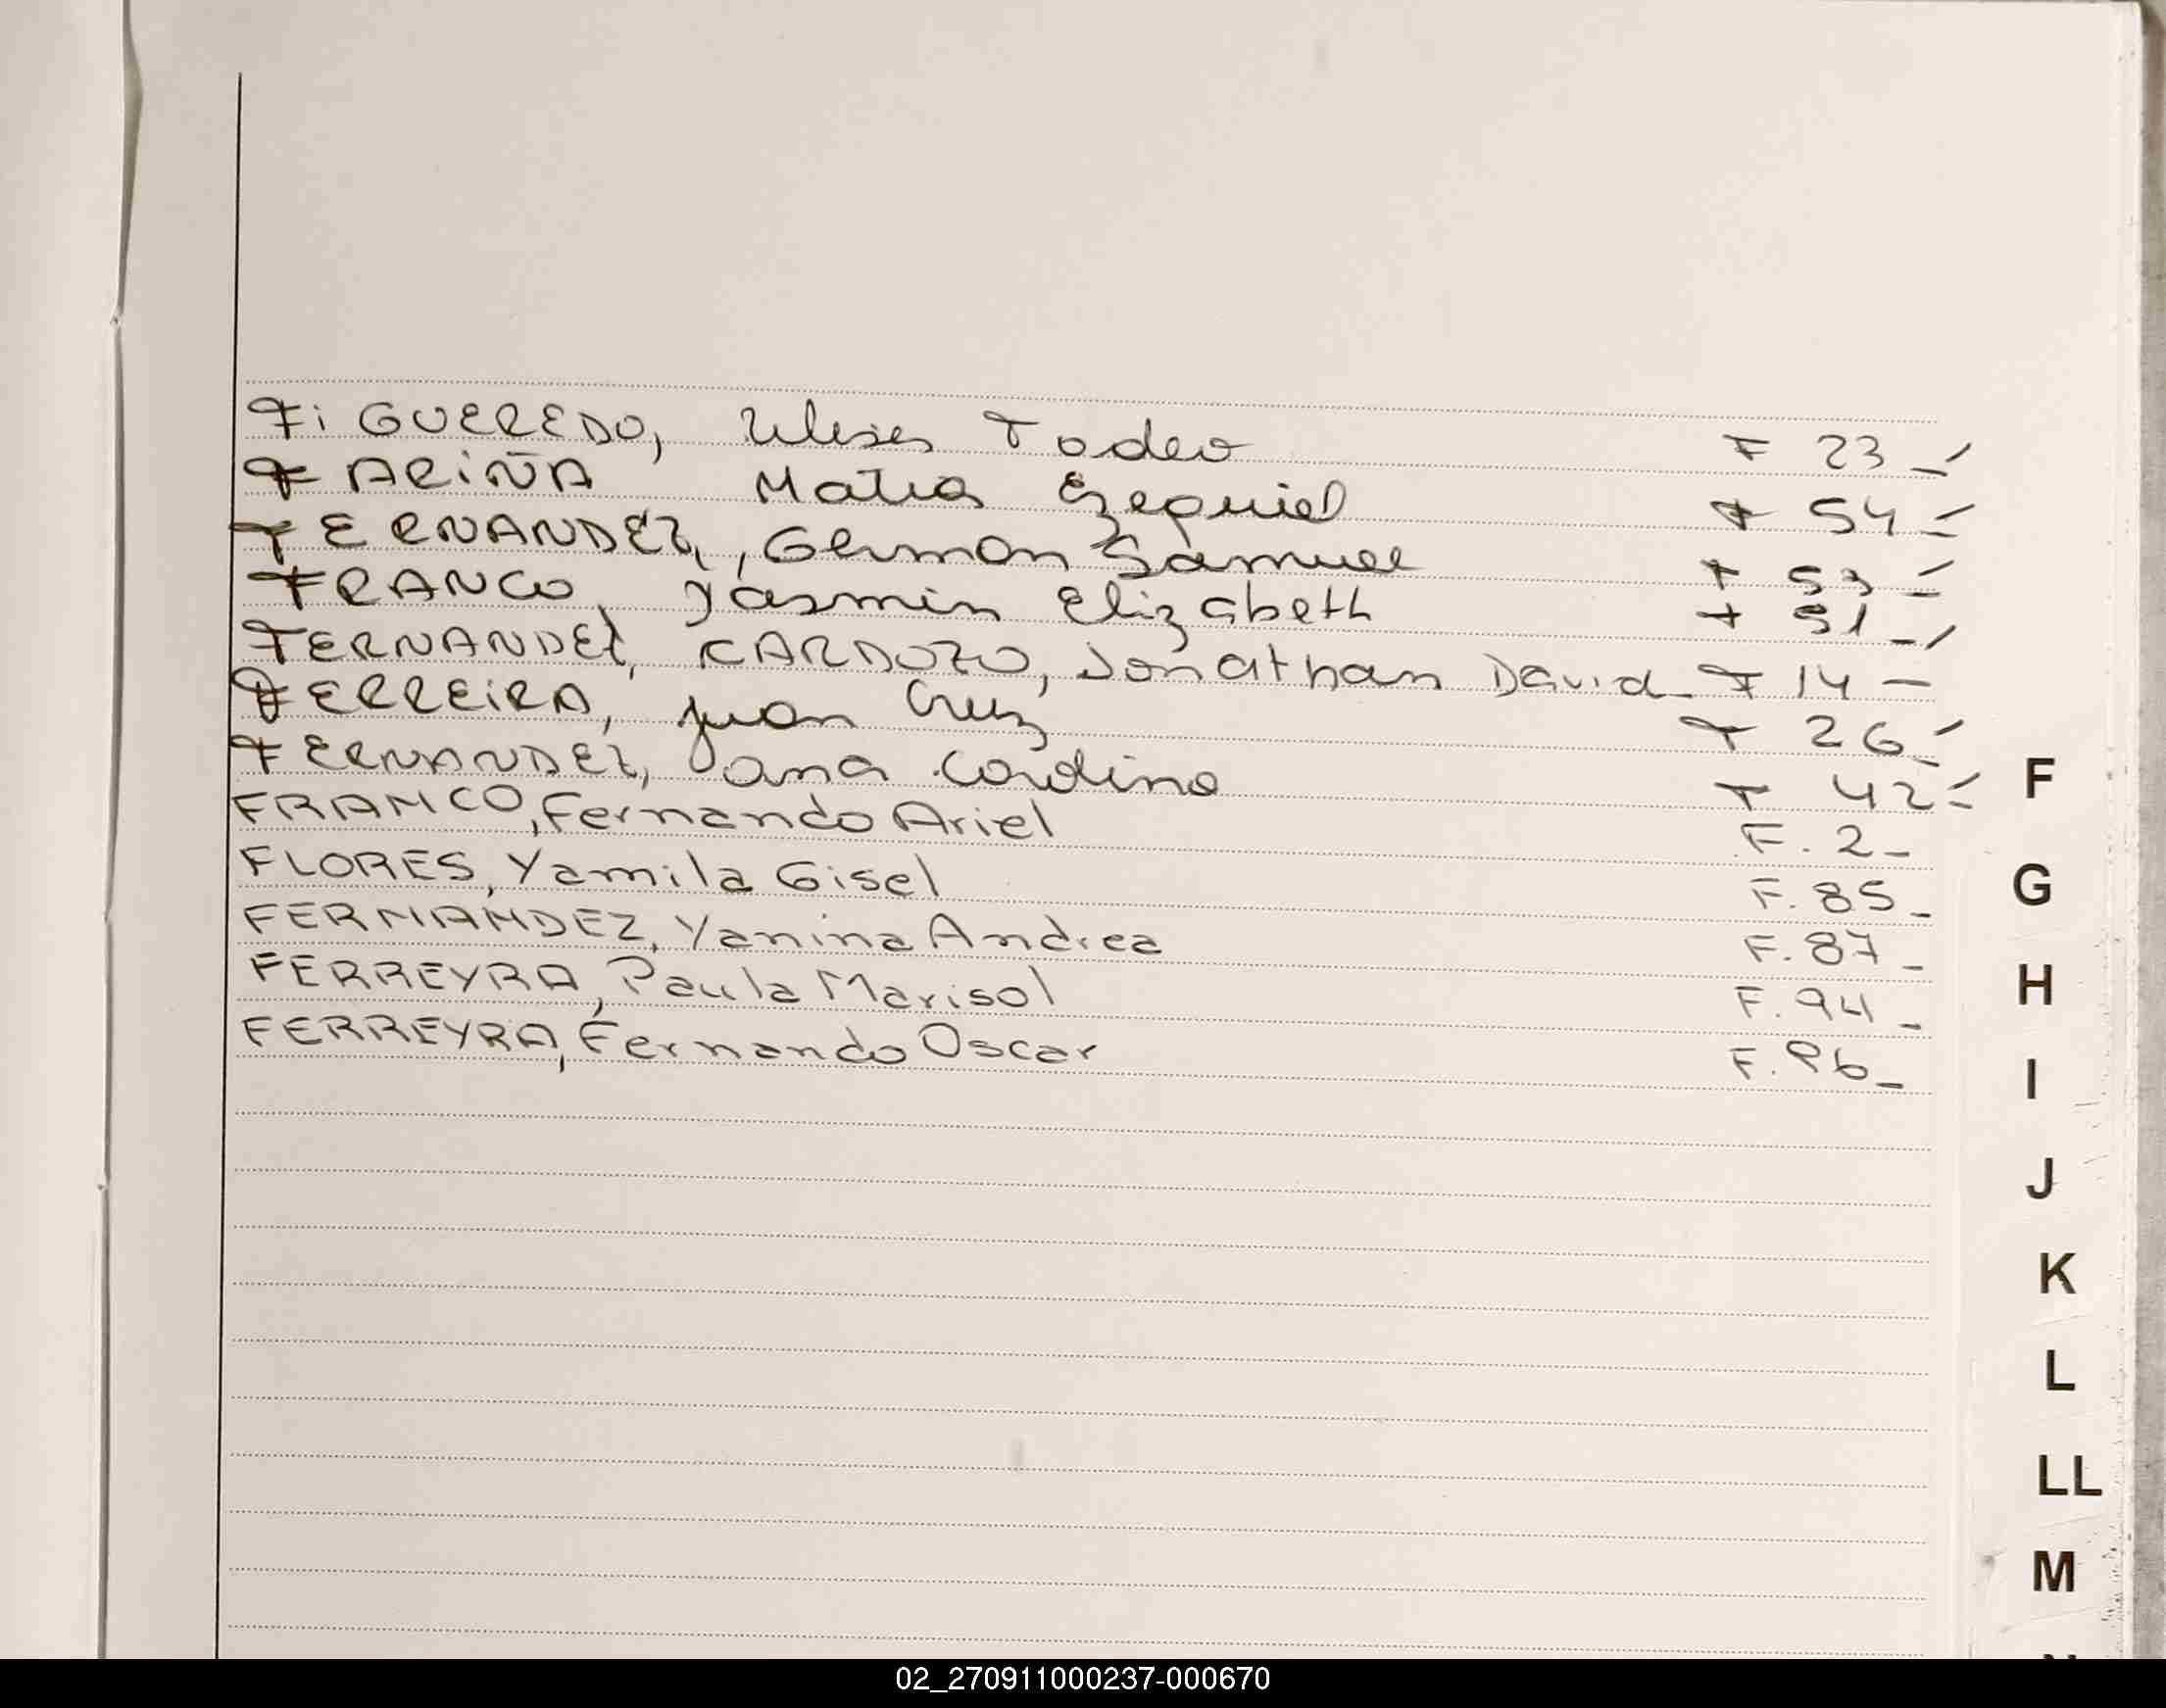 FiGUEREDO, Ulises Tadeo F 23 -
FARIÑA Matias Ezequiel F 54 -
FERNANDEZ, German Samuel F 53 -
FRANCO, Yasmin Elizabeth F 51 -
FERNANDEZ, CARDOZO, Jonathan David - F 14 -
FERREIRA, Juan Cruz F 26 -
FERNANDEZ, Ana Carolina F 42 -
FRANCO, Fernando Ariel F. 2 -
FLORES, Yamila Gisel F. 85 -
FERNANDEZ, Yanina Andrea F. 87 -
FERREYRA, Paula Marisol F. 94 -
FERREYRA, Fernando Oscar F. 96 -
F
G
H
I
J
K
L
LL
M
02_270911000237-000670